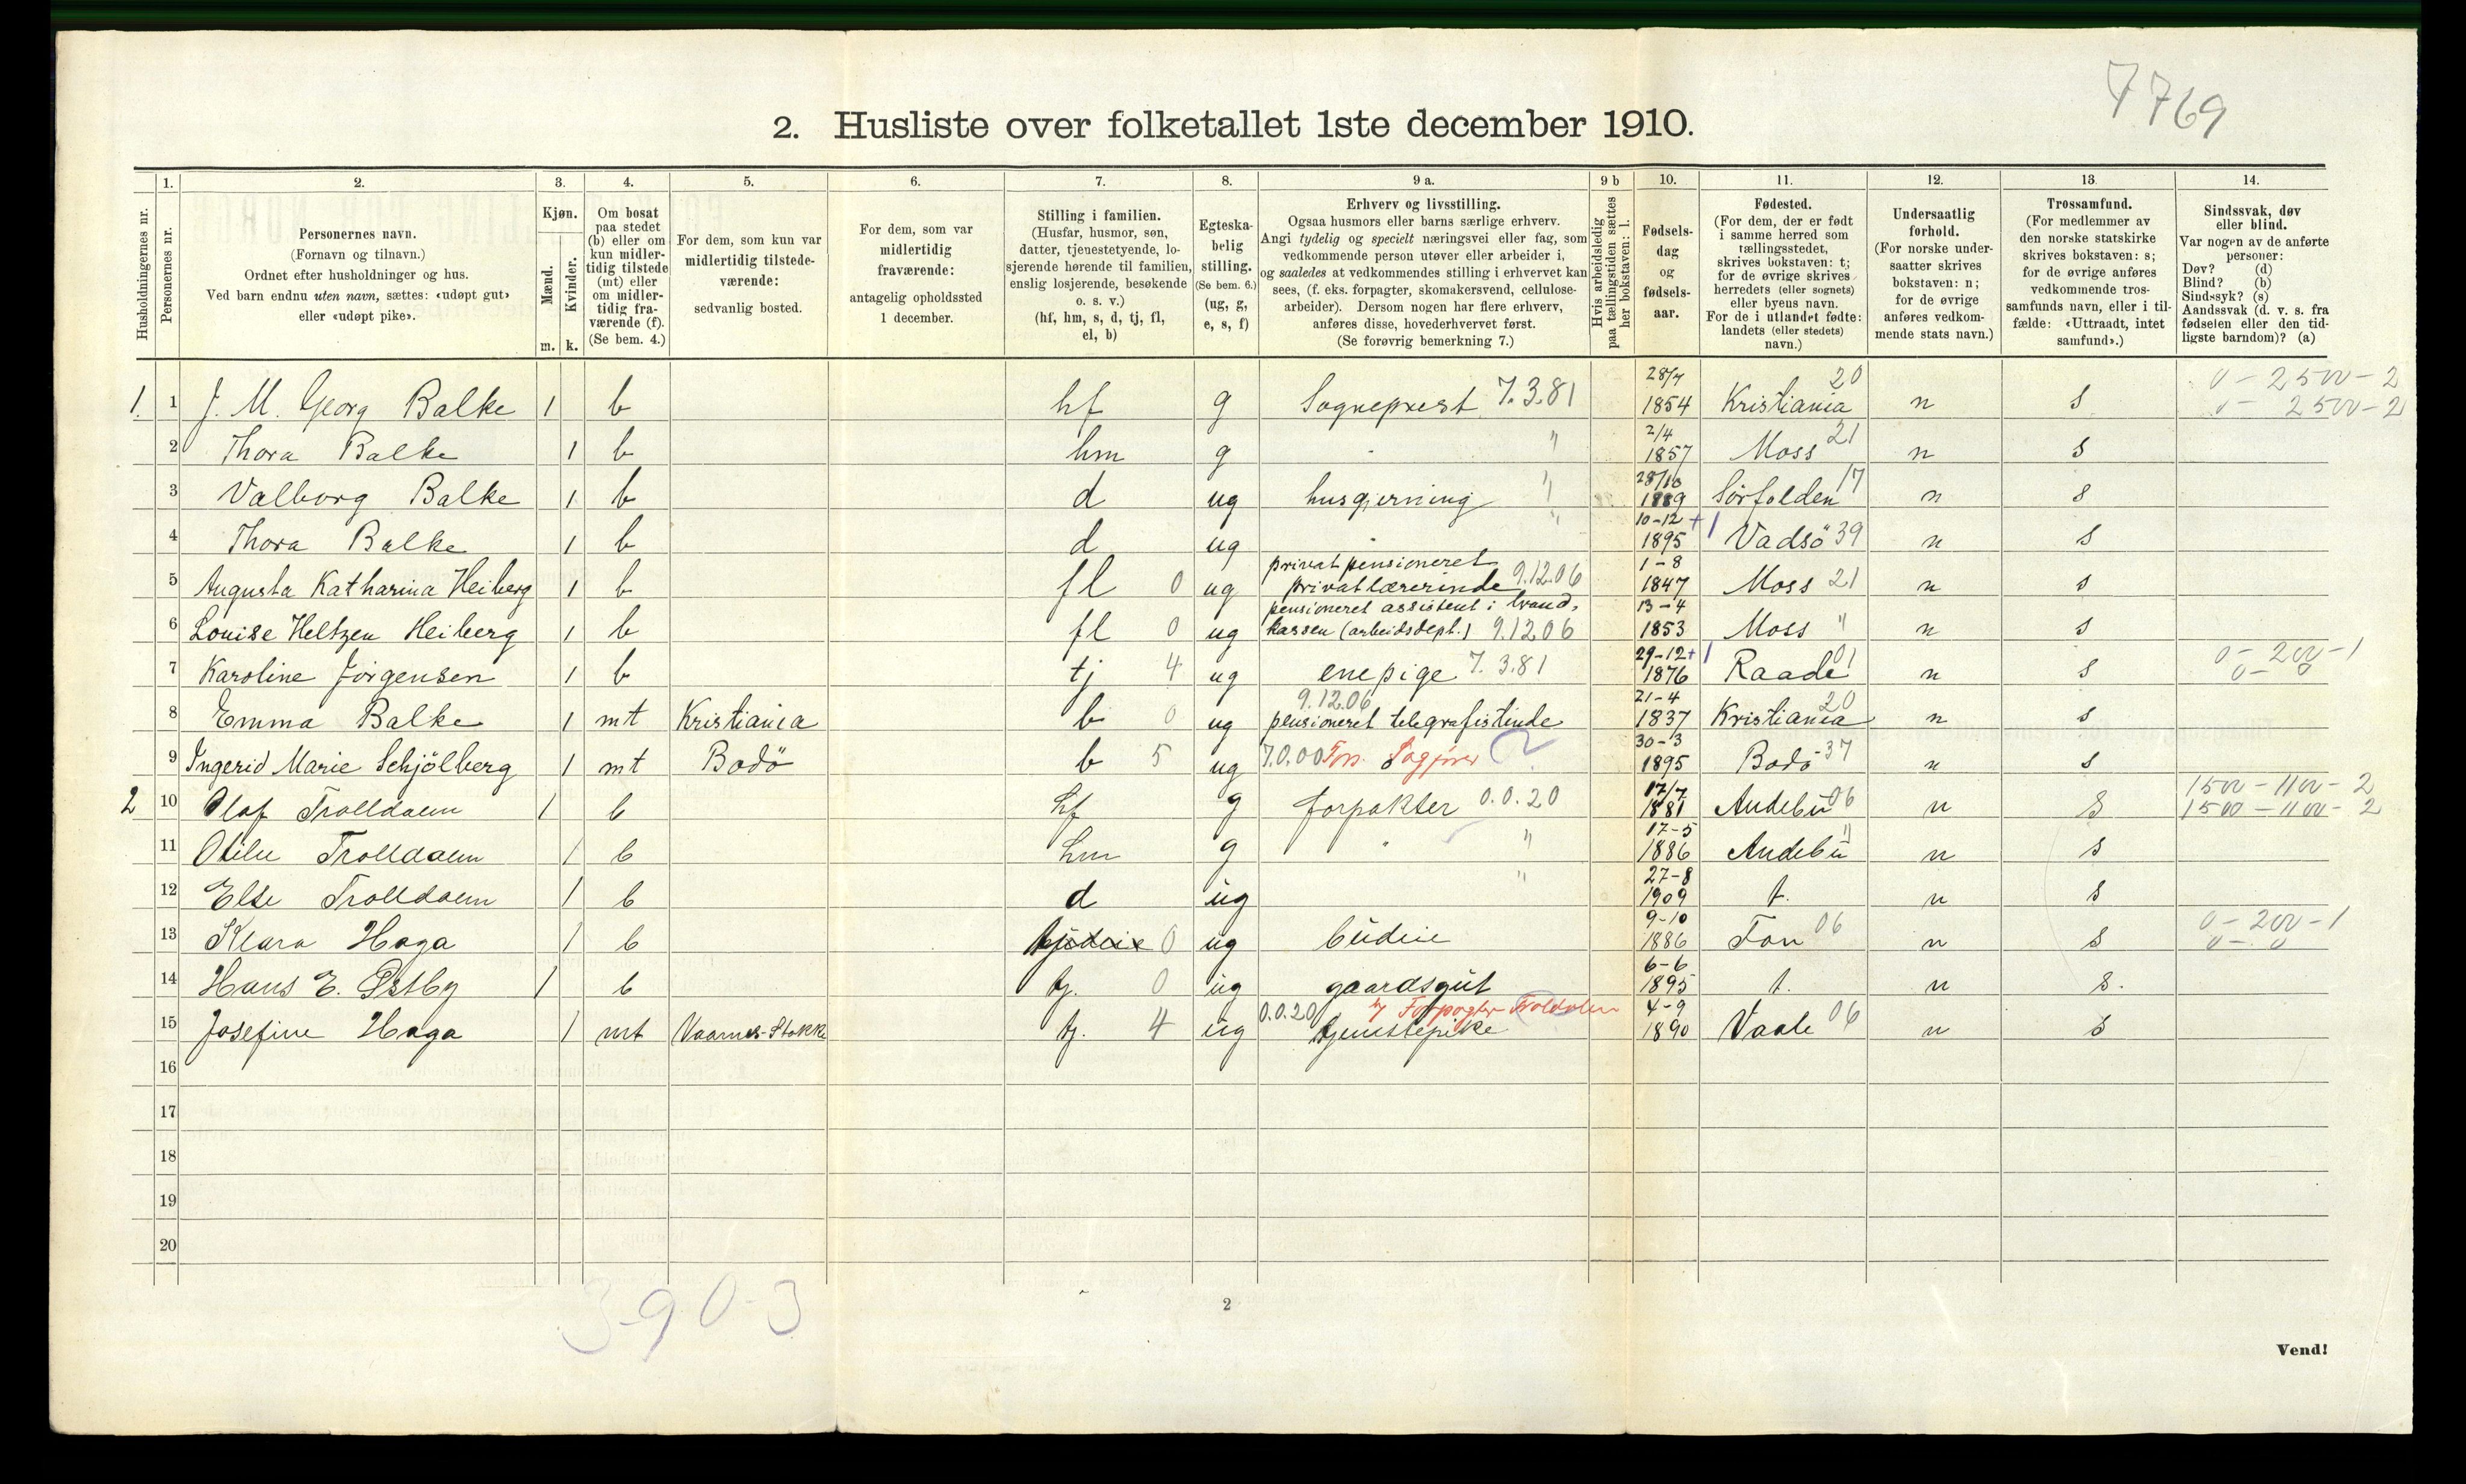 7769
2. Husliste over folketallet 1ste december 1910.
Husholdningernes nr.
1. Personernes nr.
2. Personernes navn. (Fornavn og tilnavn.) Ordnet efter husholdninger og hus. Ved barn endnu uten navn, sættes: «udøpt gut» eller «udøpt pike».
3. Kjøn. Mænd. Kvinder. m. k.
4. Om bosat paa stedet (b) eller om kun midlertidig tilstede (mt) eller om midlertidig fraværende (f). (Se bem. 4.)
5. For dem, som kun var midlertidig tilstedeværende: sedvanlig bosted.
6. For dem, som var midlertidig fraværende: antagelig opholdssted 1 december.
7. Stilling i familien. (Husfar, husmor, søn, datter, tjenestetyende, losjerende hørende til familien, enslig losjerende, besøkende o. s. v.) (hf, hm, s, d, tj, fl, el, b)
8. Egteskabelig stilling. (Se bem. 6.) (ug, g, e, s, f)
9 a. Erhverv og livsstilling. Ogsaa husmors eller barns særlige erhverv. Angi tydelig og specielt næringsvei eller fag, som vedkommende person utøver eller arbeider i, og saaledes at vedkommendes stilling i erhvervet kan sees, (f. eks. forpagter, skomakersvend, cellulosearbeider). Dersom nogen har flere erhverv, anføres disse, hovederhvervet først. (Se forøvrig bemerkning 7.)
9 b Hvis arbeidsledig paa tællingstiden sættes her bokstaven: l.
10. Fødselsdag og fødselsaar.
11. Fødested. (For dem, der er født i samme herred som tællingsstedet, skrives bokstaven: t; for de øvrige skrives herredets (eller sognets) eller byens navn. For de i utlandet fødte: landets (eller stedets) navn.)
12. Undersaatlig forhold. (For norske undersaatter skrives bokstaven: n; for de øvrige anføres vedkommende stats navn.)
13. Trossamfund. (For medlemmer av den norske statskirke skrives bokstaven: s; for de øvrige anføres vedkommende trossamfunds navn, eller i tilfælde: «Uttraadt, intet samfund».)
14. Sindssvak, døv eller blind. Var nogen av de anførte personer: Døv? (d) Blind? (b) Sindssyk? (s) Aandssvak (d. v. s. fra fødselen eller den tidligste barndom)? (a)
1. 1 J. M. Georg Balke 1 b hf g Sogneprest 7.3.81 28/7 1854 Kristiania 20 n s 0 - 2500 - 2 0 - 2500 - 2
2 Thora Balke 1 b hm g " 2/4 1857 Moss 21 n s
3 Valborg Balke 1 b d ug husgjerning " 1889 Sørfolden 17 n s
4 Thora Balke 1 b d ug " 10-12 1895 + 1 Vadsö 39 n s
5 Augusta Katharina Heiberg 1 b fl 0 ug privat pensioneret privatlærerinde 9.12.06 1-8 1847 Moss 21 n s
6 Louise Heltzen Heiberg 1 b fl 0 ug pensioneret assistent i brandkassen (arbeidsdept.) 9.12.06 13-4 1853 Moss " n s
7 Karoline Jørgensen 1 b tj 4 ug enepige 7.3.81 29-12 1876 + 1 Raade 01 n s 0 - 200 - 1 0 - 0
8 Emma Balke 1 mt Kristiania b 0 ug 9.12.06 pensioneret telegrafistinde 21-4 1837 Kristiania 20 n s
9 Ingerid Marie Schjölberg 1 mt Bodö b 5 ug 7.0.00 Fors. Sagfører 30-3 1895 Bodö 37 n s
2 10 Olaf Trolldalen 1 b hf g forpakter 0.0.20 17/7 1881 Andebu 06 n s 1500 - 1100 - 2 1500 - 1100 - 2
11 Otilie Trolldalen 1 b hm g " 17-5 1886 Andebu " n s
12 Else Trolldalen 1 b d ug " 27-8 1909 t. n s
13 Klara Haga 1 b 0 ug budeie 9-10 1886 Fon 06 n s 0 - 200 - 1 0 - 0
14 Hans E. Østby 1 b tj. 0 ug gaardsgut 6-6 1895 t. n s.
15 Josefine Haga 1 mt Vaarnes-Stokke tj. 4 ug 0.0.20 tj Forpagter Troldalen tjenstepike 4-9 1890 Vaale 06 n s
16
17
18
19
20
3-9 0-3
2
Vend!